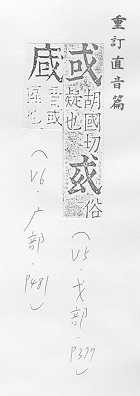 重訂直音篇
或 胡國切
疑也 㦯 俗
（V5.戈部.P377）
音或
（V6.广部.P481）